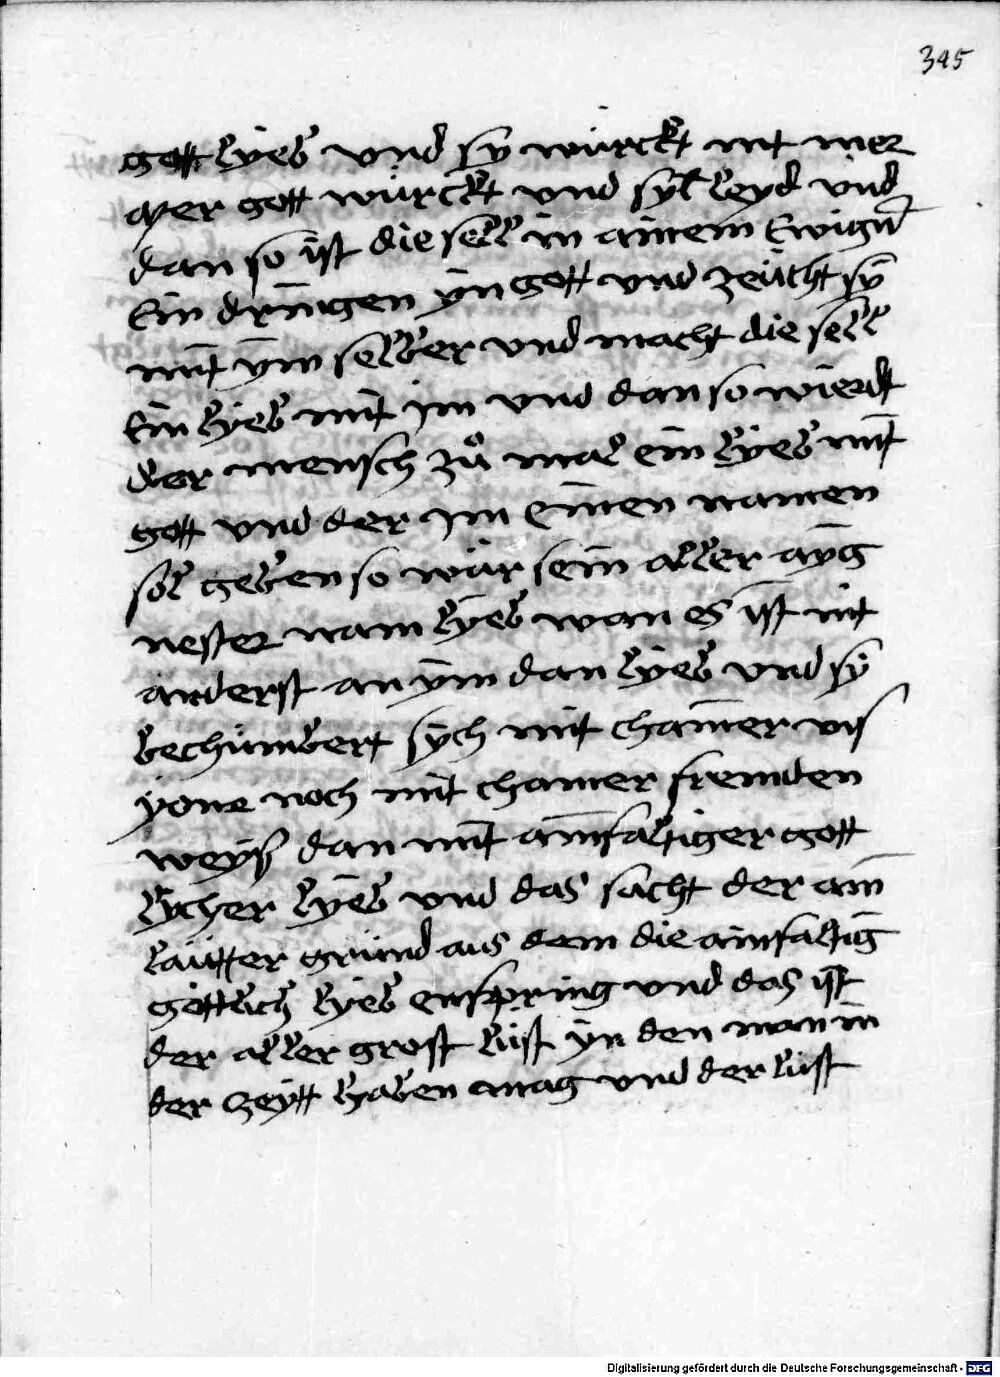 345
gott lÿeb vnd sÿ würckt nit mer
aber gott würckt vnd sÿ leyd vnd
dan so ist die sell in ainem Ewign̄
Ein dringen ÿn gott vnd zeücht sÿ
mit ÿm selber vnd macht die sell
Ein lÿeb mit jm vnd dan so wierdt
der mensch zů mal ein lÿeb mit
gott vnd der jm einen namen
sol geben so wär sein aller aÿg
nester nam lÿeb wan es ist nit
anderst an ÿm dan lÿeb vnd sÿ
bechümbert sÿch mit chainer vis
ÿone noch mit chainer fremden
weÿß dan mit ainfaltiger gott
lÿcher lÿeb vnd das sacht der ain
laütter gründ aus dem die ainfaltig
göttlich lÿeb enspring vnd das ist
der aller grost lüst ÿn den man in
der zeÿtt haben mag vnd der lüst
Digitalisierung gefördert durch die Deutsche Forschungsgemeinschaft - DFG